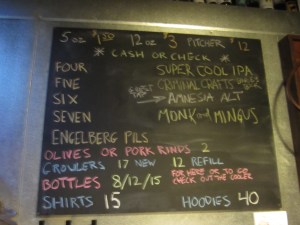 5 oz $1.50 12 oz $3 PITCHER $12
* CASH OR CHECK *
FOUR SUPER COOL IPA
FIVE CRIMINAL CRAFTS
SIX AMNESIA ALT
SEVEN MONK and MINGUS
ENGELBERG PILS
OLIVES OR PORK RINDS 2
GROWLERS 17 NEW 12 REFILL
BOTTLES 8/12/15 FOR HERE OR TO GO
CHECK OUT THE COOLER
SHIRTS 15 HOODIES 40